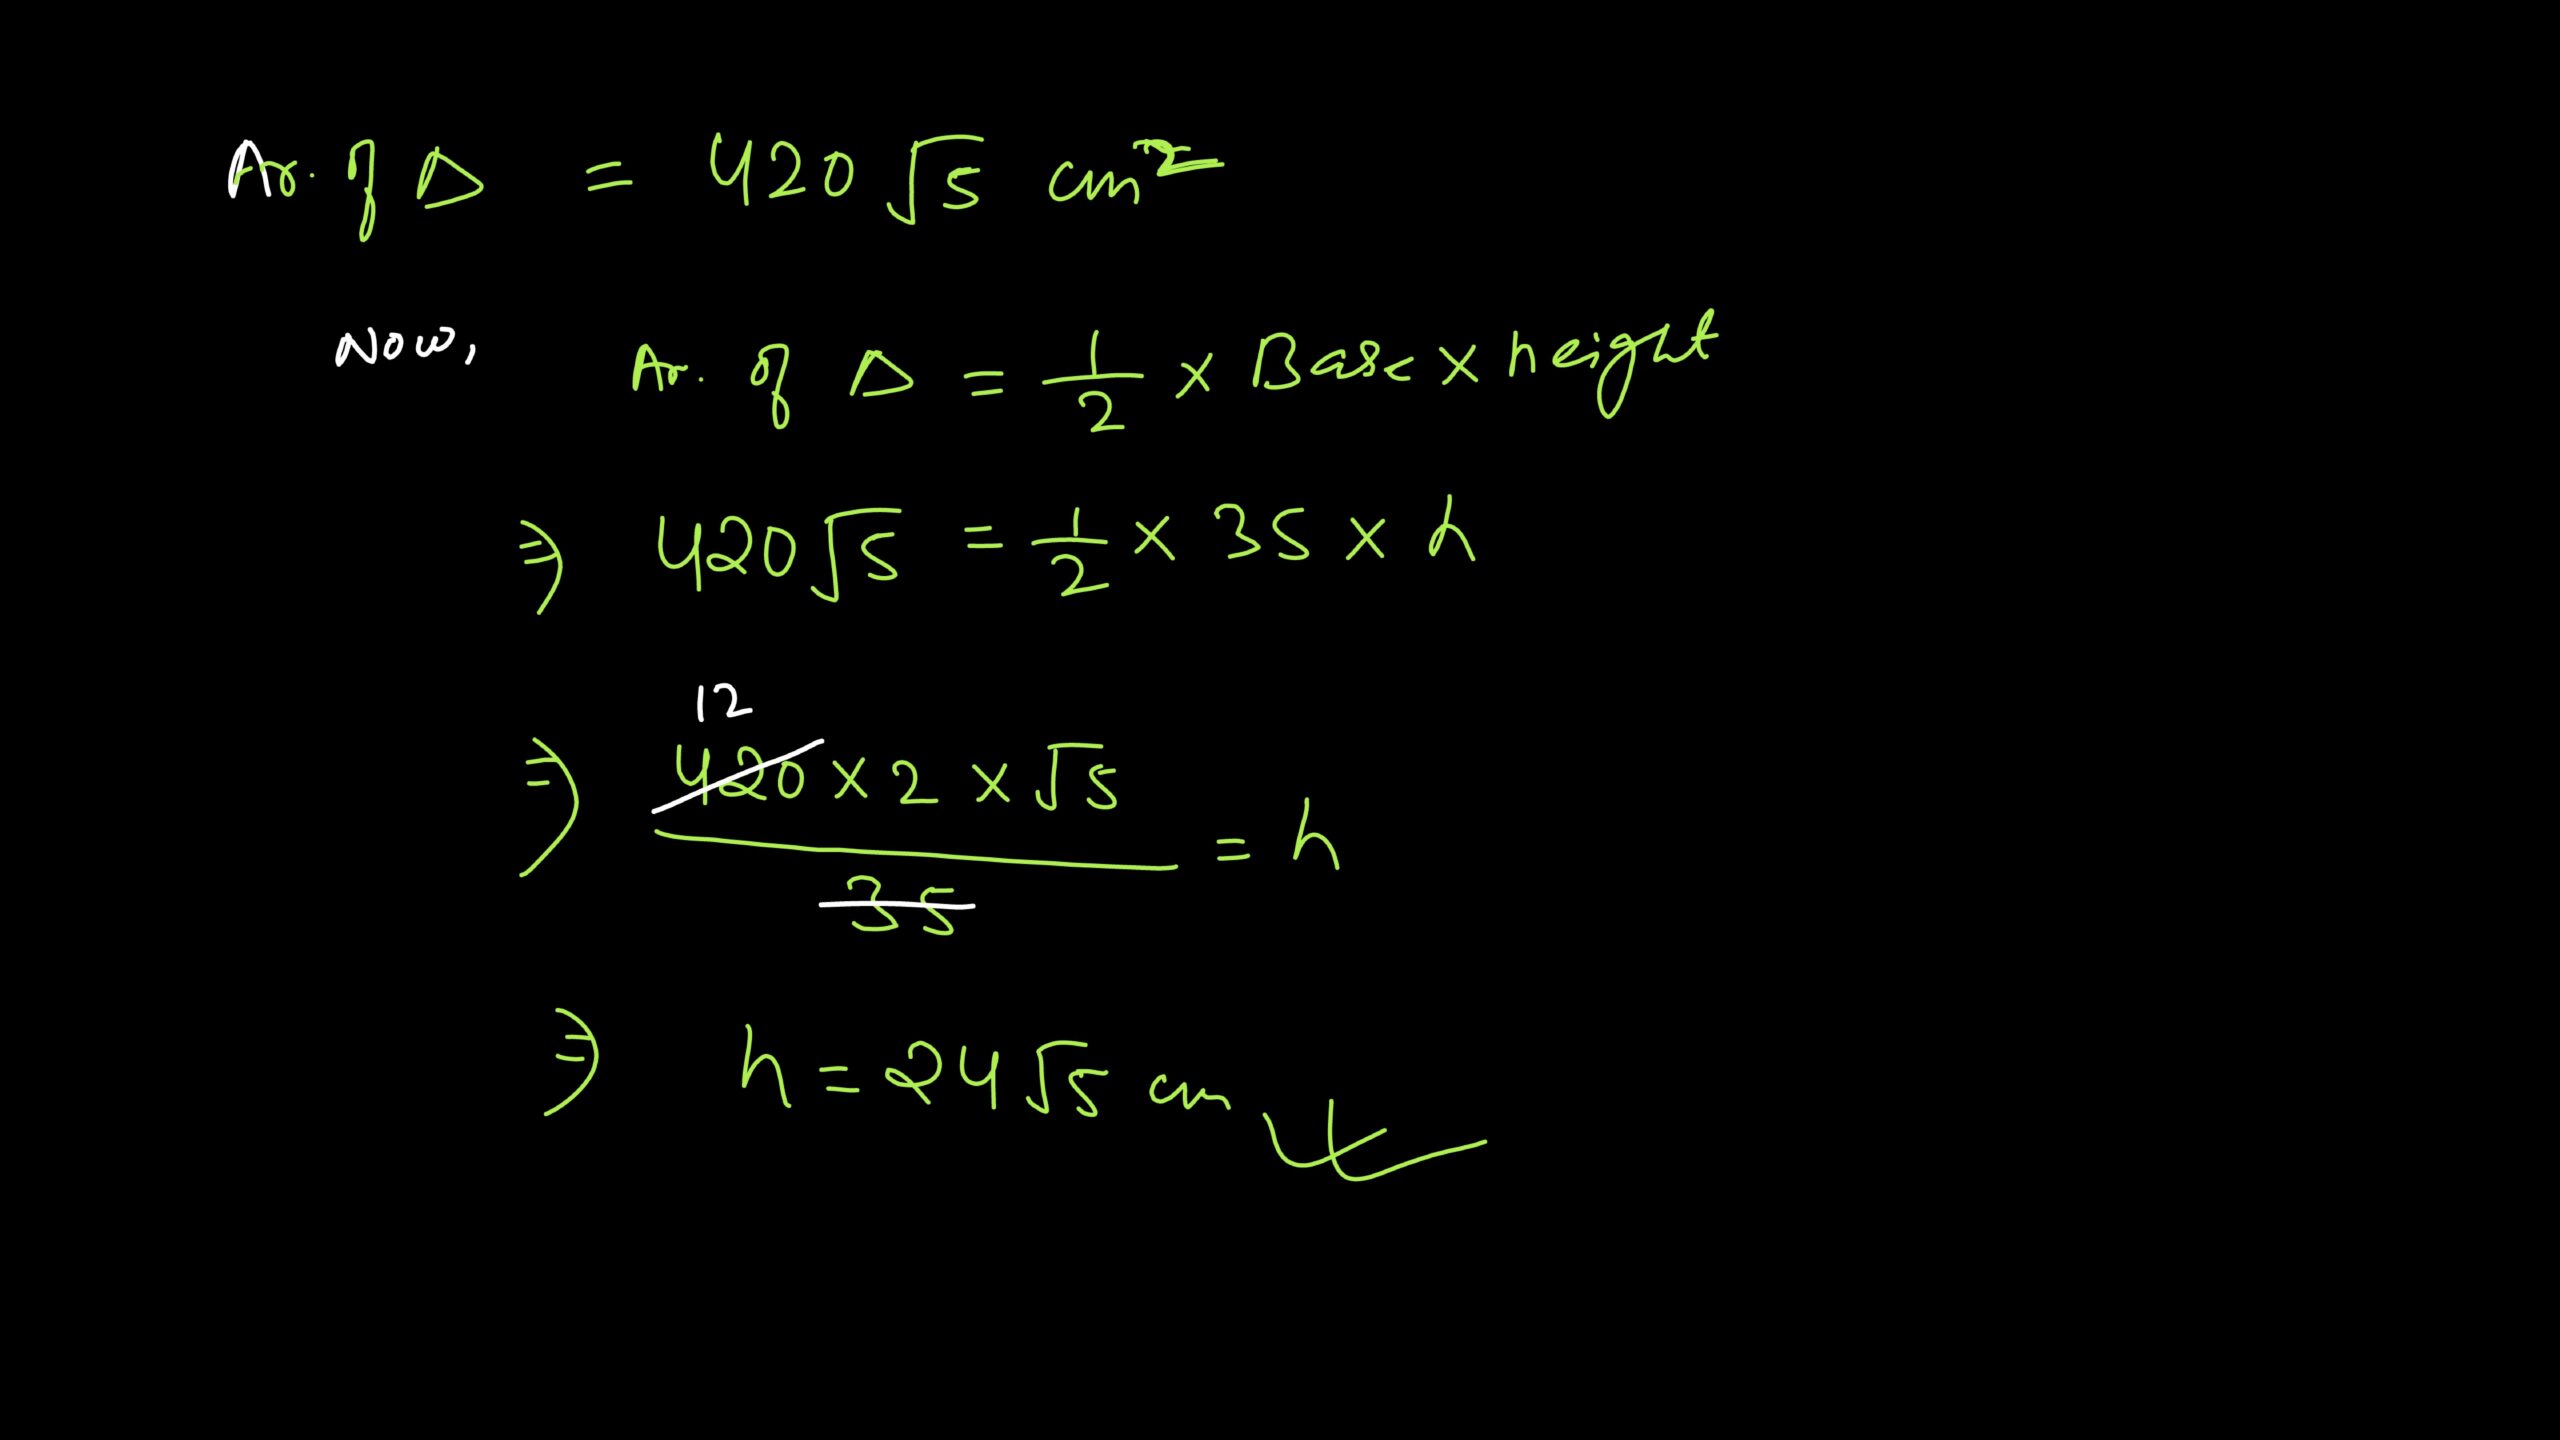 Ar. of Δ = 420 √5 cm²
Now,
Ar. of Δ = 1/2 × Base × height
⇒ 420√5 = 1/2 × 35 × h
12
⇒ 420 × 2 × √5 / 35 = h
⇒ h = 24√5 cm